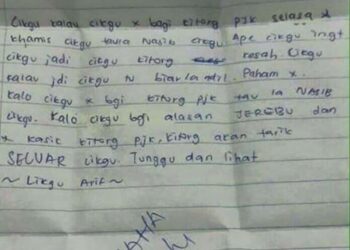 Cikgu kalau cikgu x bagi kitorg pjk selasa &
khamis cikgu taula Nasib cikgu. Ape cikgu ingt
cikgu jadi cikgu kitorg kesah Cikgu
kalau jdi cikgu biarla adil. Paham x.
Kalo cikgu x bgi kitorg pjk tau la NASIB
Cikgu. Kalo cikgu bgi alasan JEREBU dan
x kasik kitorg pjk, kitorg akan tarik
SELUAR cikgu Tunggu dan lihat
~ Cikgu Arif ~
HAHA